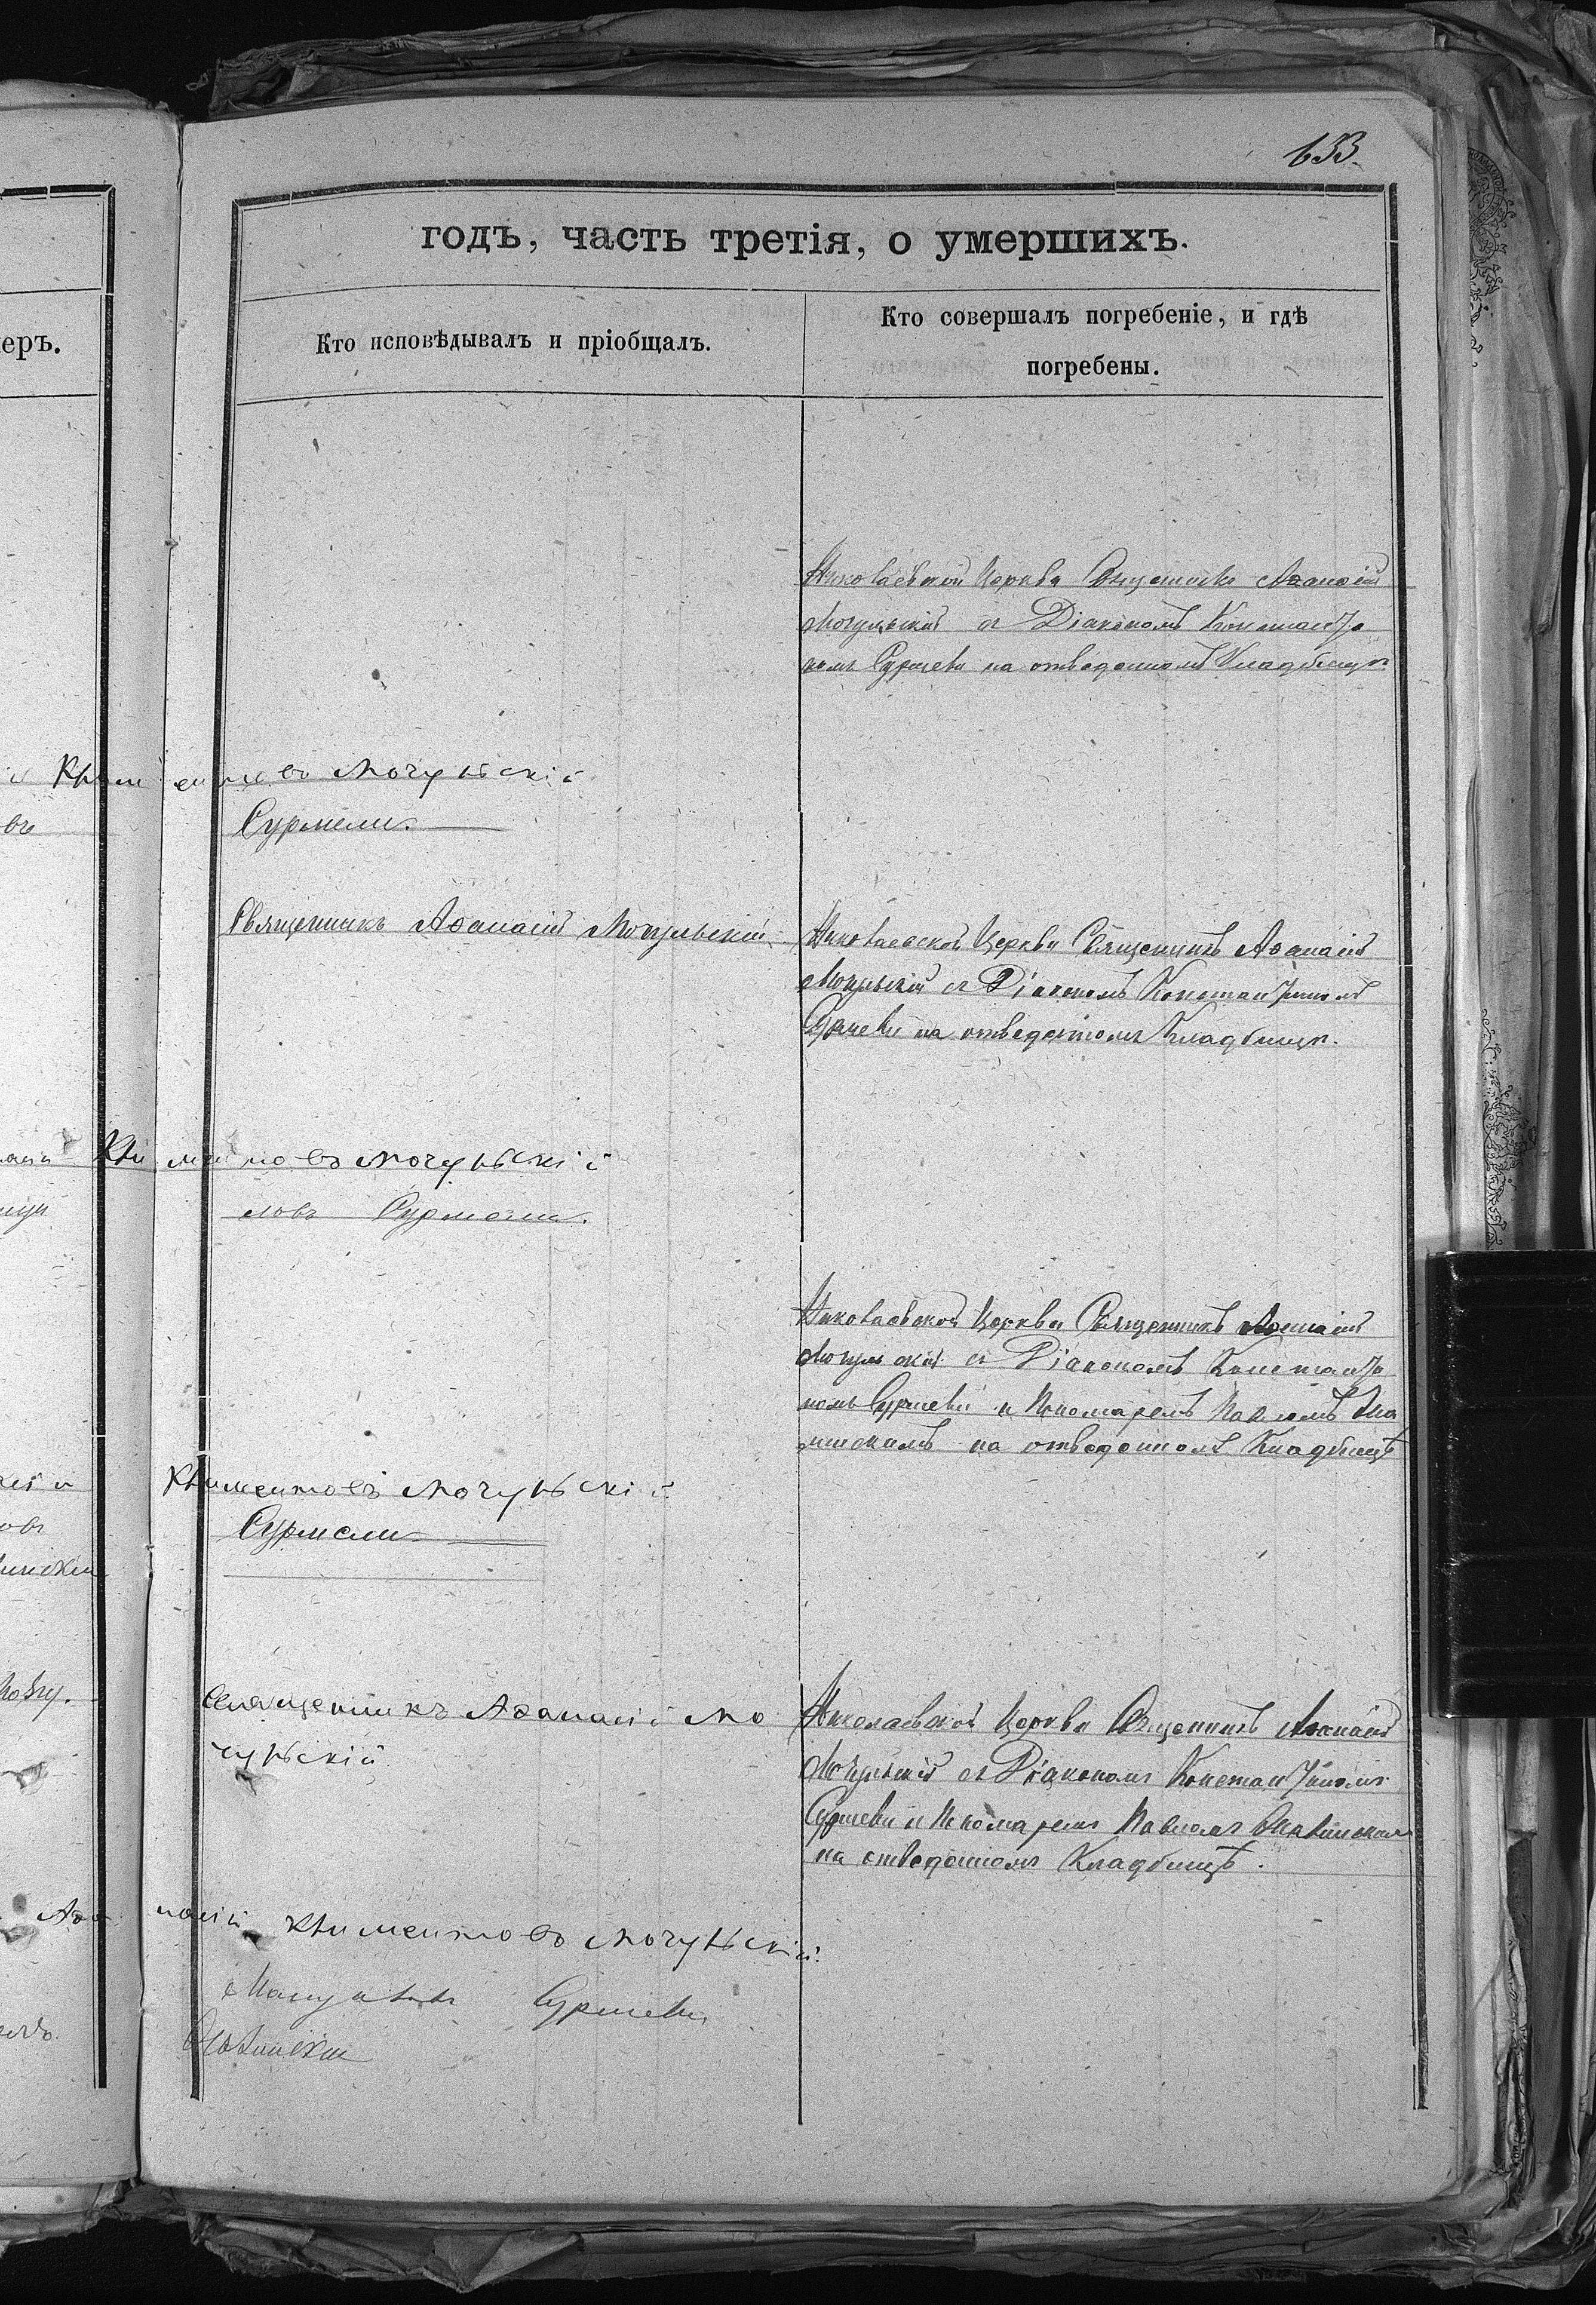 633.
годъ, часть третія, о умершихъ.
еръ.
Кто исповѣдывалъ и пріобщалъ.
Кто совершалъ погребеніе, и гдѣ
погребены.
Николаевской Церкви Священникъ Аѳанасій
Могульскій съ Діакономъ Константи
номъ Сурмели на отведенномъ Кладбищѣ
Климентовъ Могульскій
въ
Сурмели.
Священникъ Аѳанасій Могульскій
Николаевской Церкви Священникъ Аѳанасій
Могульскій съ Діакономъ Константиномъ
Сурмели на отведенномъ Кладбищѣ.
Климентовъ Могульскій
ловъ Сурмели.
Николаевской Церкви Священникъ Аѳанасій
Могульскій съ Діакономъ Константи
номъ Сурмели и Пономаремъ Павломъ
на отведенномъ Кладбищѣ
Климентовъ Могульскій
овъ
Сурмели
Священникъ Аѳанасій Мо
гульскій
Николаевской Церкви Священникъ Аѳанасій
Могульскій съ Діакономъ Константиномъ
Сурмели и Пономаремъ Павломъ
на отведенномъ Кладбищѣ.
Аѳанасій Климентовъ Могульскій.
Сурмели